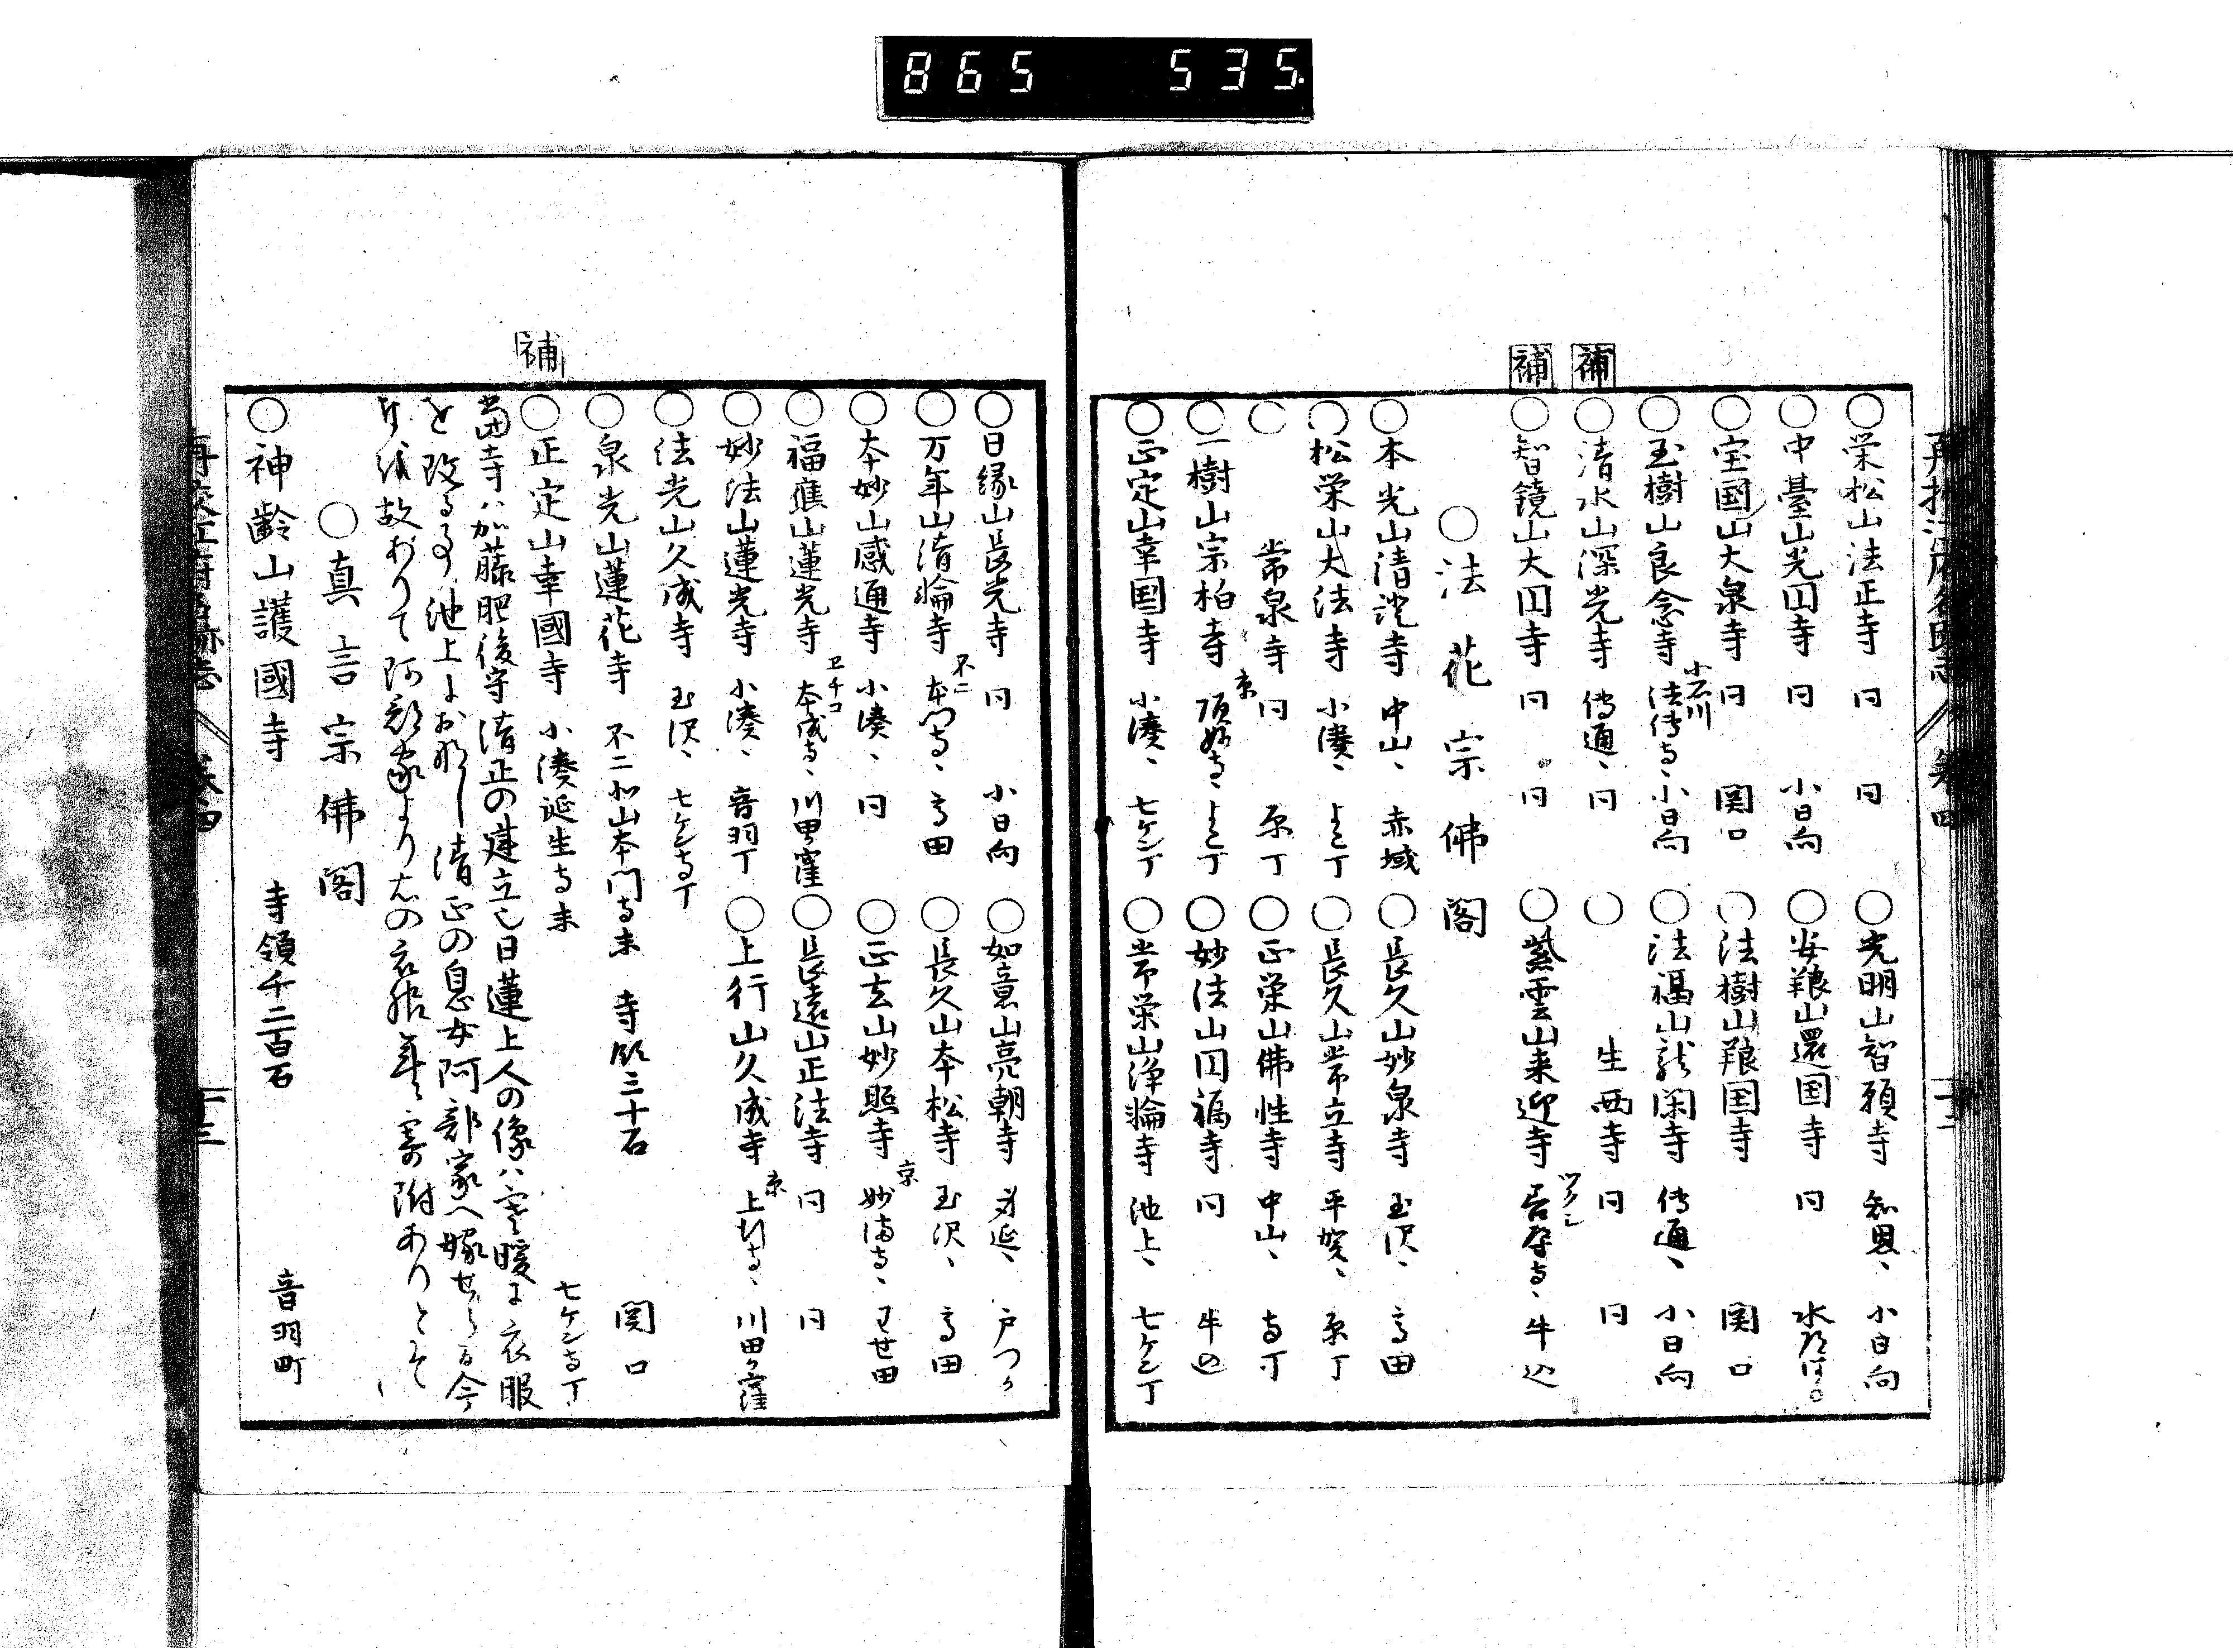 865 535
○栄松山法正寺 同 同 ○光明山智願寺 知恩、 小日向
○中臺山光円寺 同 小日向 ○安穏山還国寺 同
○宝國山大泉寺 同 関口 ○法樹山 国寺 関口
○玉樹山良念寺 小石川 法傳寺、小日向 ○法福山龍閑寺 傳通、 小日向
補 ○清水山深光寺 傳通、 同 ○生西寺 同 同
補 ○智鏡山大円寺 同 同 ○紫雲山来迎寺 ツクシ 善導寺、 牛込
○法花宗佛閣
○本光山清 寺 中山、 赤城 ○長久山妙泉寺 玉沢、 高田
○松栄山大法寺 小湊、 丁 ○長久山常立寺 平賀、 原丁
○常泉寺 同 原丁 ○正栄山佛性寺 中山、 寺丁
○一樹山宗柏寺 京 頂妙寺、 丁 ○妙法山円福寺 同 牛込
○正定山幸国寺 小湊、 七ケン丁 ○常栄山浄輪寺 池上、 七ケン丁
○日縁山長光寺 同 小日向 ○如意山亮朝寺 身延、 戸つか
○万年山清輪寺 不二 本門寺、 高田 ○長久山本松寺 玉沢、 高田
○本妙山感通寺 小湊、 同 ○正玄山妙照寺 京 妙満寺、 わせ田
○福應山蓮光寺 ヱチコ 本成寺、 川田窪 ○長遠山正法寺 同 同
○妙法山蓮光寺 小湊、 音羽丁 ○上行山久成寺 京 上行寺、 川田ケ窪
○法光山久成寺 玉沢、 七ケン寺丁
○泉光山蓮花寺 不二北山本門寺末 寺領三十石 関口
補 ○正定山幸國寺 小湊延生寺末 七ケン寺丁
當寺ハ加藤肥後守清正の建立也日蓮上人の像ハ寒暖に衣服
を改る事池上におなし清正の息女阿部家へ嫁せらる今
に於故ありて阿部家より右の衣服等寄附ありとそ
○真言宗佛閣
○神齢山護國寺 寺領千二百石 音羽町